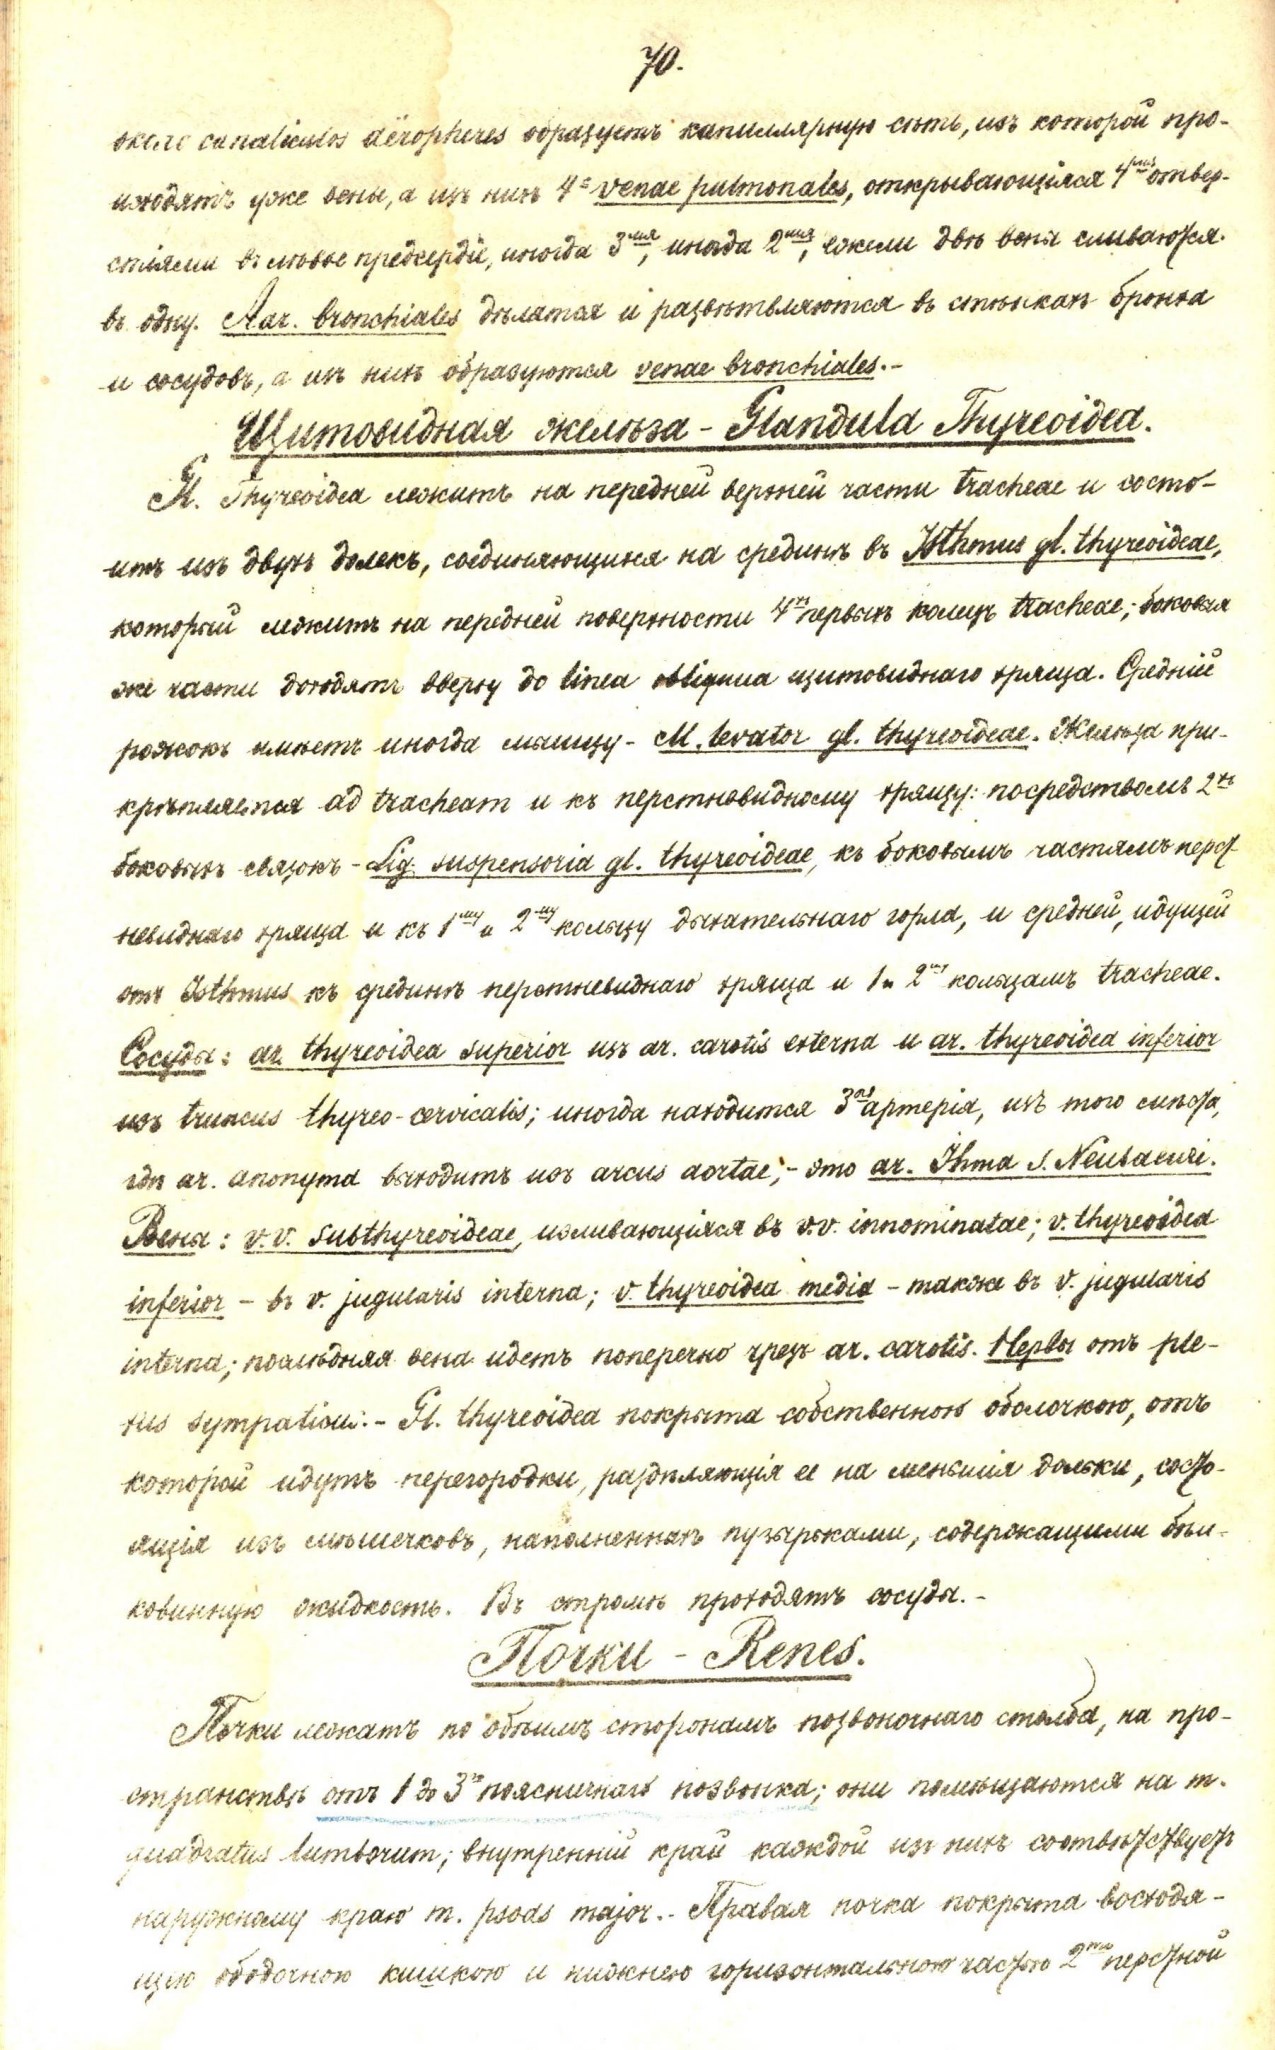 70.
около canaliculos aëropheres образуетъ капиллярную сѣть, изъ которой про-
изходятъ уже вены, а изъ нихъ 4е venae pulmonales, открывающіяся 4мя отвер-
стіями въ лѣвое предсердіе, иногда 3мя, иногда 2мя, ежели двѣ вены сливаются
въ одну. Aar. bronchiales дѣлятся и развѣтвляются въ стѣнкахъ бронха
и сосудовъ, а изъ нихъ образуются venae bronchiales.-
Щитовидная желѣза - Glandula Thyreoidea.
Gl. Thyreoidea лежитъ на передней верхней части tracheae и состо-
итъ изъ двухъ долекъ, соединяющихся на срединѣ въ Isthmus gl. thyreoideae,
который лежитъ на передней поверхности 4хъ первыхъ колецъ tracheae; боковыя
же части доходятъ вверху до linea obliqua щитовиднаго хряща. Средній
рожокъ имѣетъ иногда мышцу - M. levator gl. thyreoideae. Желѣза при-
крѣпляется ad tracheam и къ перстневидному хрящу: посредствомъ 2хъ
боковыхъ связокъ - Lig. suspensoria gl. thyreoideae, къ боковымъ частямъ перст-
невиднаго хряща и къ 1му и 2му кольцу дыхательнаго горла, и средней, идущей
отъ Isthmus къ срединѣ перстневиднаго хряща и 1 и 2мъ кольцамъ tracheae.
Сосуды: ar. thyreoidea superior изъ ar. carotis externa и ar. thyreoidea inferior
изъ truncus thyreo-cervicalis; иногда находится 3ья артерія, изъ того мѣста,
гдѣ ar. anonyma выходитъ изъ arcus aortae; - это ar. Ihma s. Neubaeuri.
Вены: v.v. subthyreoideae, изливающіяся въ v.v. innominatae; v. thyreoidea
inferior - въ v. jugularis interna; v. thyreoidea media - также въ v. jugularis
interna; послѣдняя вена идетъ поперечно чрезъ ar. carotis. Нервы отъ ple-
xus sympaticus.- Gl. thyreoidea покрыта собственною оболочкою, отъ
которой идутъ перегородки, раздѣляющія ее на меньшія дольки, состо-
ящія изъ мѣшечковъ, наполненныхъ пузырьками, содержащими бѣл-
ковинную жидкость. Въ стромѣ проходятъ сосуды.-
Почки - Renes.
Почки лежатъ по обѣимъ сторонамъ позвоночнаго столба, на про-
странствѣ отъ 1 до 3го поясничнаго позвонка; они помѣщаются на m.
quadratus lumborum; внутренній край каждой изъ нихъ соотвѣтствуетъ
наружному краю m. psoas major.- Правая почка покрыта восходя-
щею ободочною кишкою и нижнею горизонтальною частью 2ти перстной